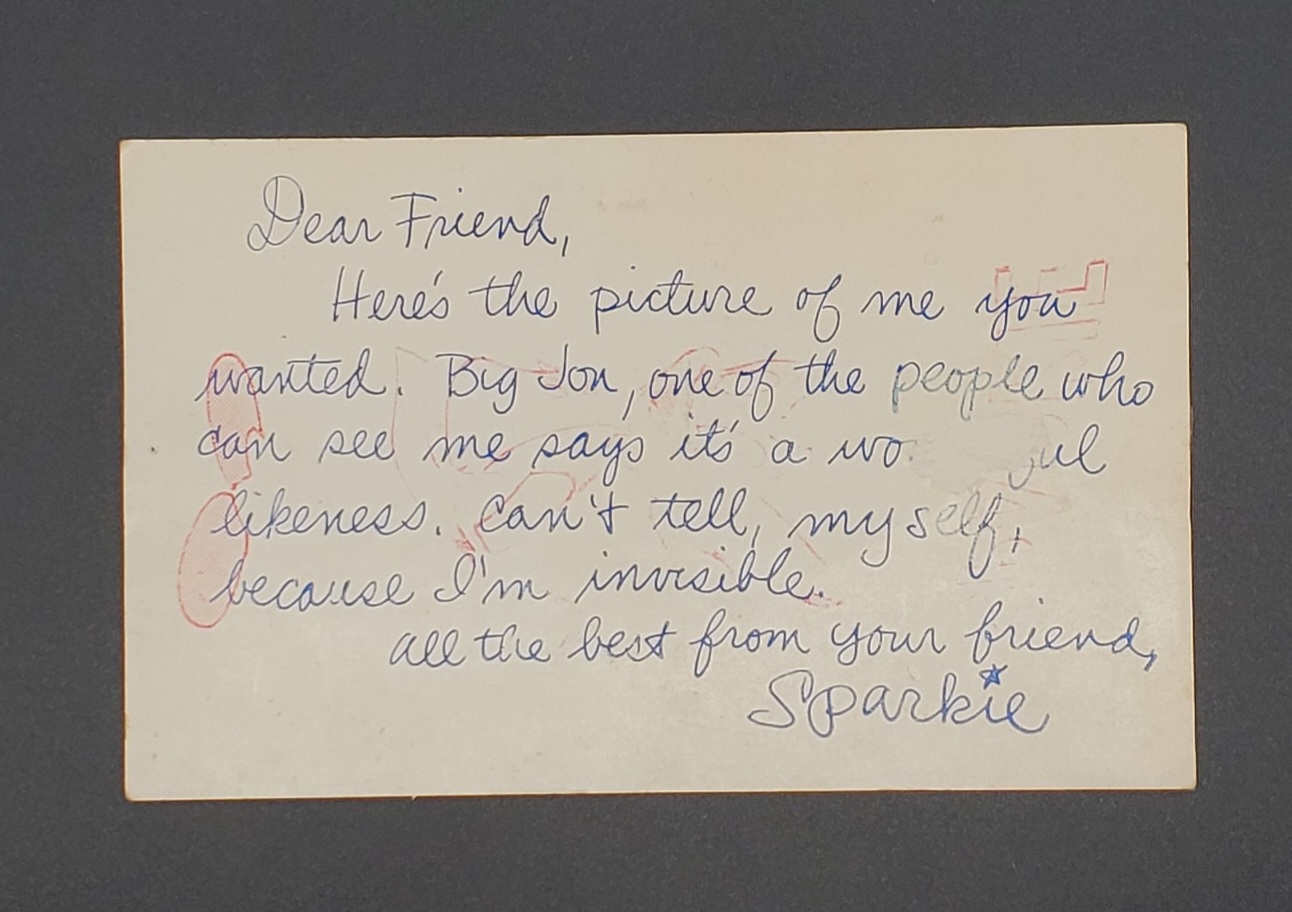 Dear Friend,
Here's the picture of me you
wanted. Big Jon, one of the people who
can see me says it's a
likeness. Can't tell, myself,
because I'm invisible.
All the best from your friend,
Sparkie